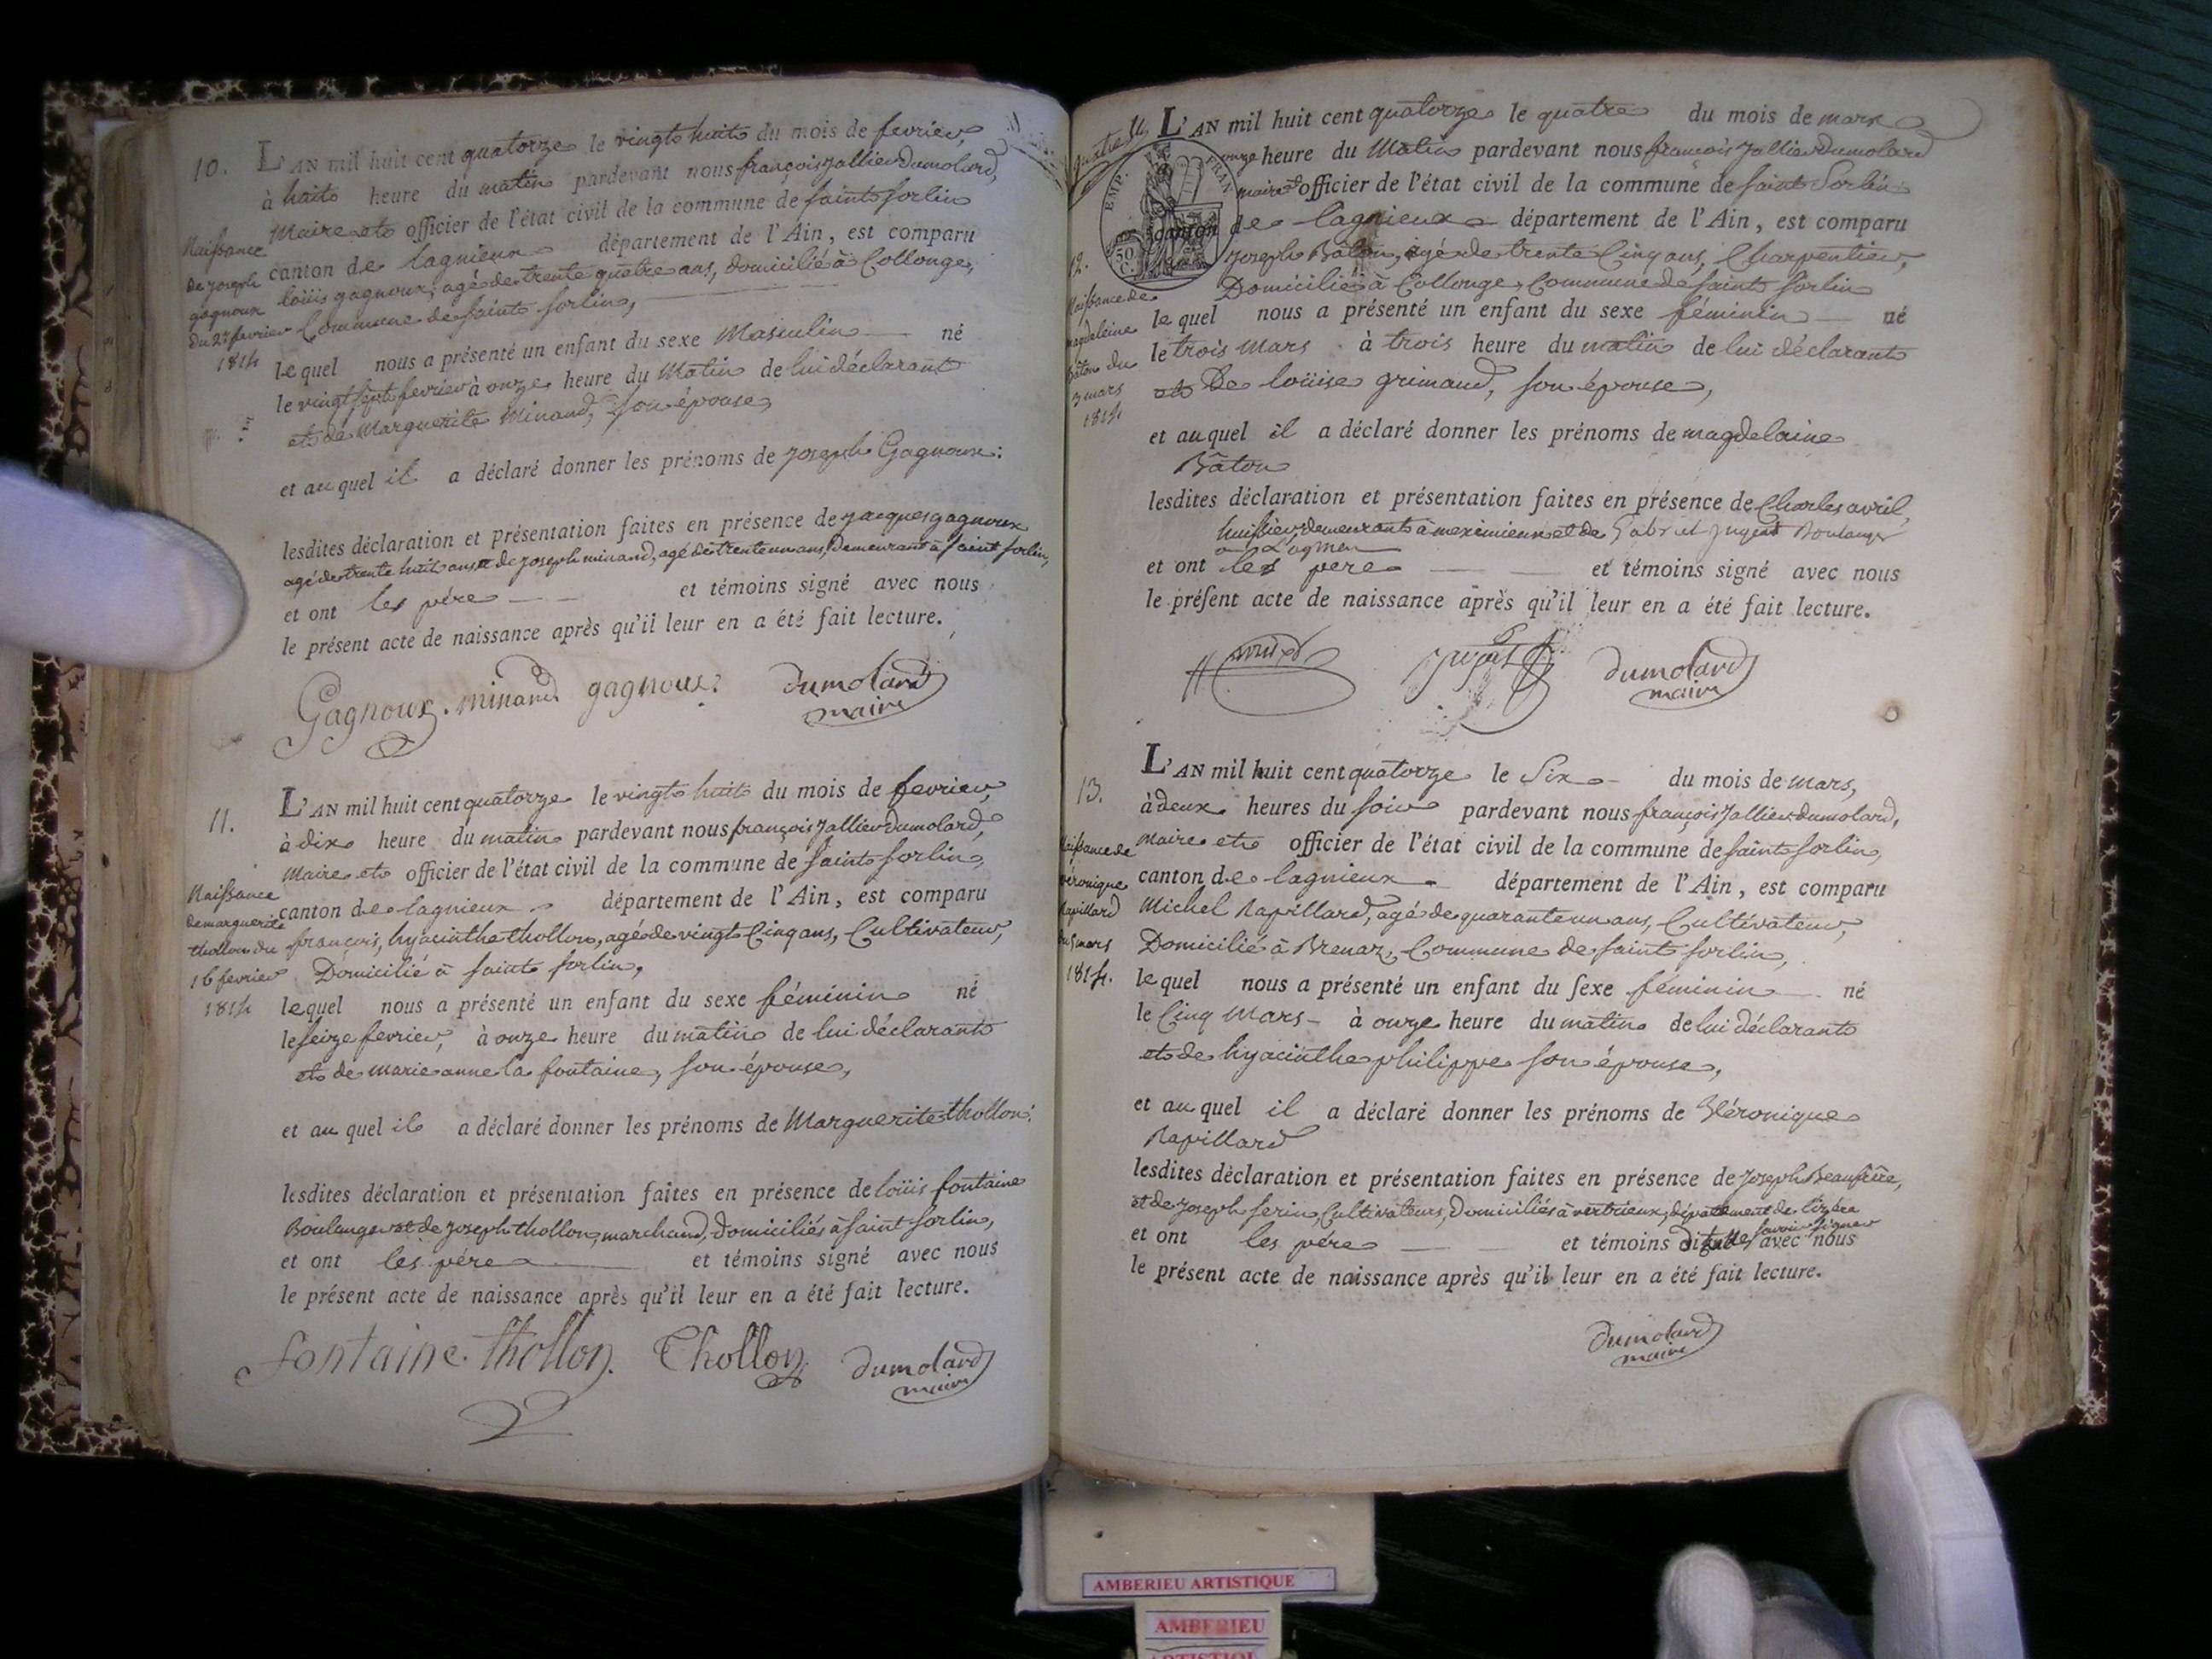 10.
L'AN mil huit cent quatorze le vingt huit du mois de fevrier,
à huit heure du matin pardevant nous françois Jallier Dumolard,
Maire et officier de l'état civil de la commune de saint sorlin
canton de lagnieux département de l'Ain, est comparu
loüis gagnoux, agé de trente quatre ans, domicilié à Collonge,
Commune de saint sorlin,
lequel nous a présenté un enfant du sexe Masculin né
le vingt sept fevrier à onze heure du Matin de lui déclarant
et de Marguerite Minand, son épouse,
et auquel il a déclaré donner les prénoms de joseph Gagnoux:
lesdites déclaration et présentation faites en présence de jacques gagnoux
agé de trente huit ans et de joseph minand, agé de trente un ans, Demeurant à saint sorlin,
et ont les père et témoins signé avec nous
le présent acte de naissance après qu'il leur en a été fait lecture.
Gagnoux. minand gagnoux. Dumolard
maire
Naissance
de joseph
gagnoux
du 27 fevrier
1814
11.
L'AN mil huit cent quatorze le vingt huit du mois de fevrier,
à dix heure du matin pardevant nous françois Jallier dumolard,
Maire et officier de l'état civil de la commune de saint sorlin,
canton de lagnieux département de l'Ain, est comparu
françois, hyacinthe thollon, agé de vingt Cinq ans, Cultivateur,
Domicilié à saint sorlin,
lequel nous a présenté un enfant du sexe féminin né
le seize fevrier, à onze heure du matin de lui déclarant
et de marie anne la fontaine, son épouse,
et auquel il a déclaré donner les prénoms de Marguerite thollon:
lesdites déclaration et présentation faites en présence de loüis fontaine
Boulanger et de joseph thollon, marchand, domiciliés à saint sorlin,
et ont les père et témoins signé avec nous
le présent acte de naissance après qu'il leur en a été fait lecture.
fontaine. thollon. Thollon Dumolard
maire
Naissance
de marguerite
thollon du
16 fevrier
1814
EMP. FRAN
50
C.
L'AN mil huit cent quatorze le quatre du mois de mars
onze heure du Matin pardevant nous françois Jallier dumolard
maire et officier de l'état civil de la commune de saint Sorlin
canton de lagnieux département de l'Ain, est comparu
joseph Bâton, agé de trente Cinq ans, Charpentier,
Domicilié à Collonge, Commune de saint sorlin
lequel nous a présenté un enfant du sexe féminin né
le trois mars à trois heure du matin de lui déclarant
et De loüise grimaud, son épouse,
et auquel il a déclaré donner les prénoms de magdelaine
Bâton
lesdites déclaration et présentation faites en présence de Charles avril,
huissier, demeurant à meximieux et de Boulanger
et ont les père et témoins signé avec nous
le présent acte de naissance après qu'il leur en a été fait lecture.
dumolard
maire
12.
Naissance de
magdeleine
Bâton du
3 mars
1814
13.
L'AN mil huit cent quatorze le Six du mois de mars,
à deux heures du soir pardevant nous françois Jallier dumolard,
maire et officier de l'état civil de la commune de saint sorlin,
canton de lagnieux département de l'Ain, est comparu
Michel Rapillard, agé de quarante un ans, Cultivateur,
Domicilié à Brenaz, Commune de saint sorlin,
lequel nous a présenté un enfant du sexe féminin né
le Cinq Mars à onze heure du matin de lui déclarant
et de hyacinthe philippe son épouse,
et auquel il a déclaré donner les prénoms de Véronique
Rapillard
lesdites déclaration et présentation faites en présence de joseph Beaufrère,
et de joseph serin, Cultivateurs, Domiciliés à vertrieux, département de l'izère
et ont les père et témoins dit ne savoir signer avec nous
le présent acte de naissance après qu'il leur en a été fait lecture.
Dumolard
maire
Naissance de
véronique
Rapillard
du 5 mars
1814.
AMBERIEU ARTISTIQUE
AMBERIEU
ARTISTIQUE